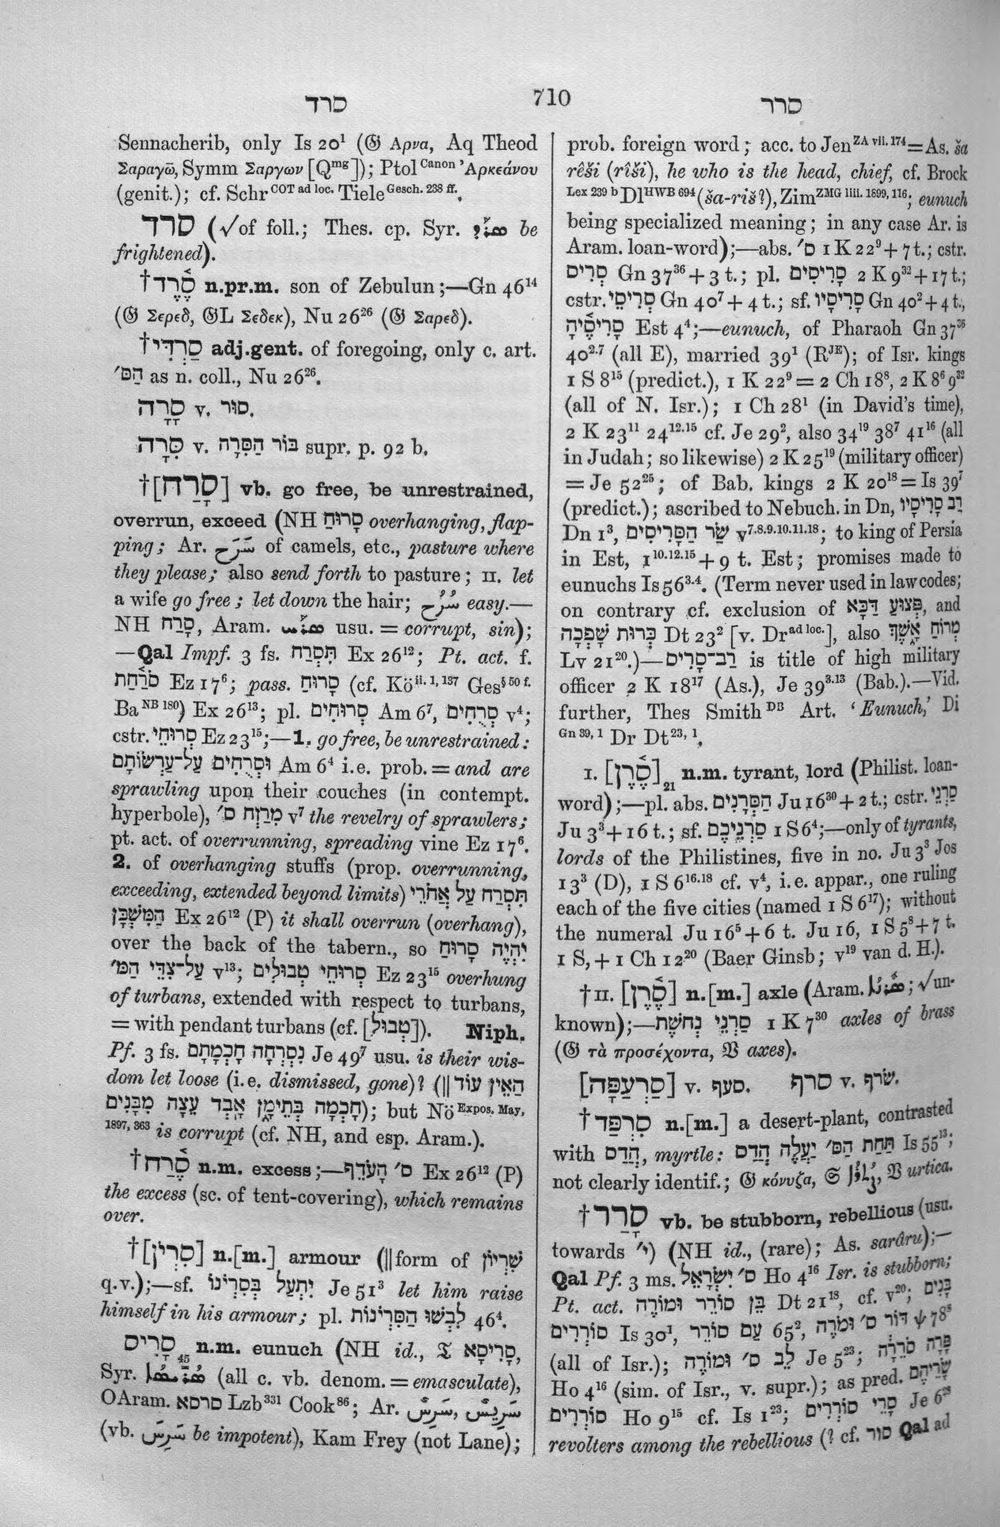 סרד
710
סרר
Sennacherib, only Is 20¹ (𝔊 Αρνα, Aq Theod
Σαραγω̄, Symm Σαργων [Qᵐᵍ]); Ptol Canon ’Αρκεάνου
(genit.); cf. Schr COT ad loc. Tiele Gesch. 238 ff.
סרד (√of foll.; Thes. cp. Syr. be
frightened).
†סֶ֫רֶד n.pr.m. son of Zebulun;—Gn 46¹⁴
(𝔊 Σερεδ, 𝔊L Σεδεκ), Nu 26²⁶ (𝔊 Σαρεδ).
†סַרְדִּי adj.gent. of foregoing, only c. art.
הַסּ׳ as n. coll., Nu 26²⁶.
סָרָה v. סור.
סִרָה v. בּוֹר הַסִּרָה supr. p. 92 b.
†[סָרַח] vb. go free, be unrestrained,
overrun, exceed (NH סָרוּחַ overhanging, flap-
ping; Ar. سَرَحَ of camels, etc., pasture where
they please; also send forth to pasture; II. let
a wife go free; let down the hair; easy.—
NH סָרַח, Aram. usu. = corrupt, sin);
—Qal Impf. 3 fs. תִּסְרַח Ex 26¹²; Pt. act. f.
סֹרַ֫חַת Ez 17⁶; pass. סָרוּחַ (cf. Kö ii. 1, 137 Ges § 50 f.
Ba NB 180) Ex 26¹³; pl. סְרוּחִים Am 6⁷, סְרֻחִים v⁴;
cstr. סְרוּחֵי Ez 23¹⁵;—1. go free, be unrestrained:
וּסְרֻחִים עַל־עַרְשׂוֹתָם Am 6⁴ i.e. prob. = and are
sprawling upon their couches (in contempt.
hyperbole), מִרְזַח ס׳ v⁷ the revelry of sprawlers;
pt. act. of overrunning, spreading vine Ez 17⁶.
2. of overhanging stuffs (prop. overrunning,
exceeding, extended beyond limits) תִּסְרַח עַל אֲחֹרֵי
הַמִּשְׁכָּן Ex 26¹² (P) it shall overrun (overhang),
over the back of the tabern., so יִהְיֶה סָרוּחַ
עַל־צִדֵּי הַמּ׳ v¹³; סְרוּחֵי טְבוּלִים Ez 23¹⁵ overhung
of turbans, extended with respect to turbans,
= with pendant turbans (cf. [טְבוּל]). Niph.
Pf. 3 fs. נִסְרְחָה חָכְמָתָם Je 49⁷ usu. is their wis-
dom let loose (i.e. dismissed, gone)? (‖ הַאֵין עוֹד
חָכְמָה בְּתֵימָן אָבְדָ עֵצָה מִבָּנִים); but Nö Expos. May,
1897, 363 is corrupt (cf. NH, and esp. Aram.).
†סֶ֫רַח n.m. excess;—ס׳ הָעֹדֵף Ex 26¹² (P)
the excess (sc. of tent-covering), which remains
over.
†[סִרְיֹן] n.[m.] armour (‖form of שִׁרְיוֹן
q.v.);—sf. יִתְעַל בְּסִרְיֹנוֹ Je 51³ let him raise
himself in his armour; pl. לִבְשׁוּ הַסִּרְיֹנוֹת 46⁴.
סָרִיס 45 n.m. eunuch (NH id., 𝔗 סָרִיסָא,
Syr. (all c. vb. denom. = emasculate),
OAram. סרסא Lzb³³¹ Cook⁸⁶; Ar. سَرِيس, سَرِسٌ
(vb. سَرِسَ be impotent), Kam Frey (not Lane);
prob. foreign word; acc. to Jen ZA vii. 174 = As. ša
rêši (rîši), he who is the head, chief, cf. Brock
Lex 239 b Dl HWB 694 (ša-riš?), Zim ZMG liii. 1899, 116; eunuch
being specialized meaning; in any case Ar. is
Aram. loan-word);—abs. ס׳ 1 K 22⁹ + 7 t.; cstr.
סְרִיס Gn 37³⁶ + 3 t.; pl. סָרִיסִים 2 K 9³² + 17 t.;
cstr. סָרִיסֵי Gn 40⁷ + 4 t.; sf. סָרִיסָיו Gn 40² + 4 t.,
סָרִיסֶיהָ Est 4⁴;—eunuch, of Pharaoh Gn 37³⁶
40²·⁷ (all E), married 39¹ (Rᴶᴱ); of Isr. kings
1 S 8¹⁵ (predict.), 1 K 22⁹ = 2 Ch 18⁸, 2 K 8⁶ 9³²
(all of N. Isr.); 1 Ch 28¹ (in David's time),
2 K 23¹¹ 24¹²·¹⁵ cf. Je 29², also 34¹⁹ 38⁷ 41¹⁶ (all
in Judah; so likewise) 2 K 25¹⁹ (military officer)
= Je 52²⁵; of Bab. kings 2 K 20¹⁸ = Is 39⁷
(predict.); ascribed to Nebuch. in Dn, רַב סָרִיסָיו
Dn 1³, שַׂר הַסָּרִיסִים v⁷·⁸·⁹·¹⁰·¹¹·¹⁸; to king of Persia
in Est, 1¹⁰·¹²·¹⁵ + 9 t. Est; promises made to
eunuchs Is 56³·⁴. (Term never used in law codes;
on contrary cf. exclusion of פְּצוּעַ דַּכָּא, and
כְּרוּת שָׁפְכָה Dt 23² [v. Dr ad loc.], also מְרוֹחַ אָ֑שֶׁךְ
Lv 21²⁰.)—רַב־סָרִיס is title of high military
officer 2 K 18¹⁷ (As.), Je 39³·¹³ (Bab.).—Vid.
further, Thes Smith DB Art. ‘Eunuch,’ Di
Gn 39, 1 Dr Dt 23, 1.
I. [סֶ֫רֶן] 21 n.m. tyrant, lord (Philist. loan-
word);—pl. abs. הַסְּרָנִים Ju 16³⁰ + 2 t.; cstr. סַרְנֵי
Ju 3³ + 16 t.; sf. סַרְנֵיכֶם 1 S 6⁴;—only of tyrants,
lords of the Philistines, five in no. Ju 3³ Jos
13³ (D), 1 S 6¹⁶·¹⁸ cf. v⁴, i.e. appar., one ruling
each of the five cities (named 1 S 6¹⁷); without
the numeral Ju 16⁵ + 6 t. Ju 16, 1 S 5⁸ + 7 t.
1 S, + 1 Ch 12²⁰ (Baer Ginsb; v¹⁹ van d. H.).
†II. [סֶ֫רֶן] n.[m.] axle (Aram. ; √un-
known);—סַרְנֵי נְחשֶׁת 1 K 7³⁰ axles of brass
(𝔊 τὰ προσέχοντα, 𝔙 axes).
[סַרְעַפָּה] v. סעף. סרף v. שׂרף.
†סִרְפַּד n.[m.] a desert-plant, contrasted
with הֲדַס, myrtle: תַּחַת הַסּ׳ יַעֲלֶה הֲדַס Is 55¹³;
not clearly identif.; 𝔊 κόνυζα, 𝔖 , 𝔙 urtica.
†סָרַר vb. be stubborn, rebellious (usu.
towards י׳) (NH id., (rare); As. sarâru);—
Qal Pf. 3 ms. ס׳ יִשְׂרָאֵל Ho 4¹⁶ Isr. is stubborn;
Pt. act. בֵּן סוֹרֵר וּמוֹרֶה Dt 21¹⁸, cf. v²⁰; בָּנִים
סוֹרְרִים Is 30¹, עַם סוֹרֵר 65², דּוֹר ס׳ וּמֹרֶה ψ 78⁸
(all of Isr.); לֵב ס׳ וּמוֹרֶה Je 5²³; פָּרָה סֹרֵרָה
Ho 4¹⁶ (sim. of Isr., v. supr.); as pred. שָׂרֵיהֶם
סוֹרְרִים Ho 9¹⁵ cf. Is 1²³; סָרֵי סוֹרְרִים Je 6²⁸
revolters among the rebellious (? cf. סור Qal ad